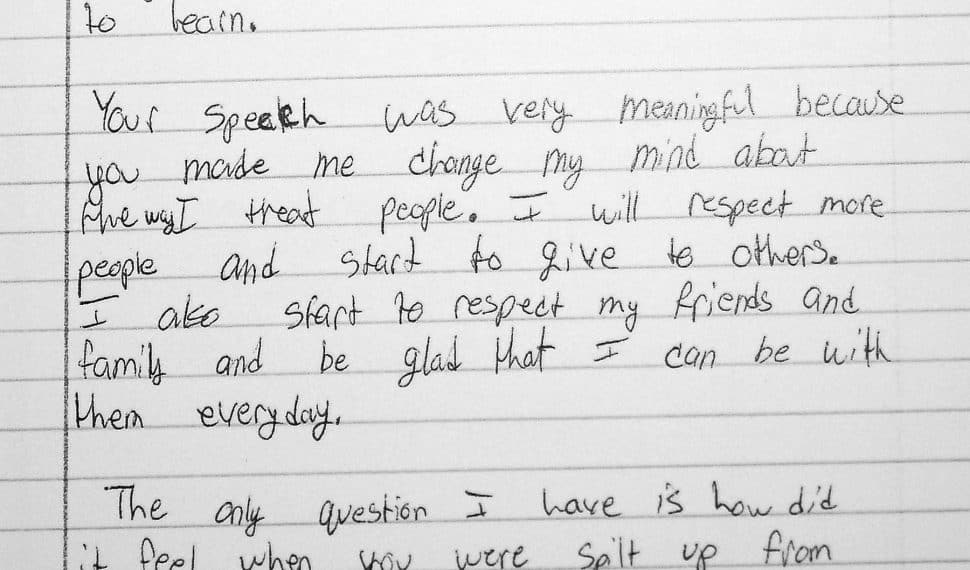 to learn.
Your speech was very meaningful because
you made me change my mind about
the way I treat people. I will respect more
people and start to give to others.
I also start to respect my friends and
family and be glad that I can be with
them everyday.
The only question I have is how did
it feel when you were spilt up from